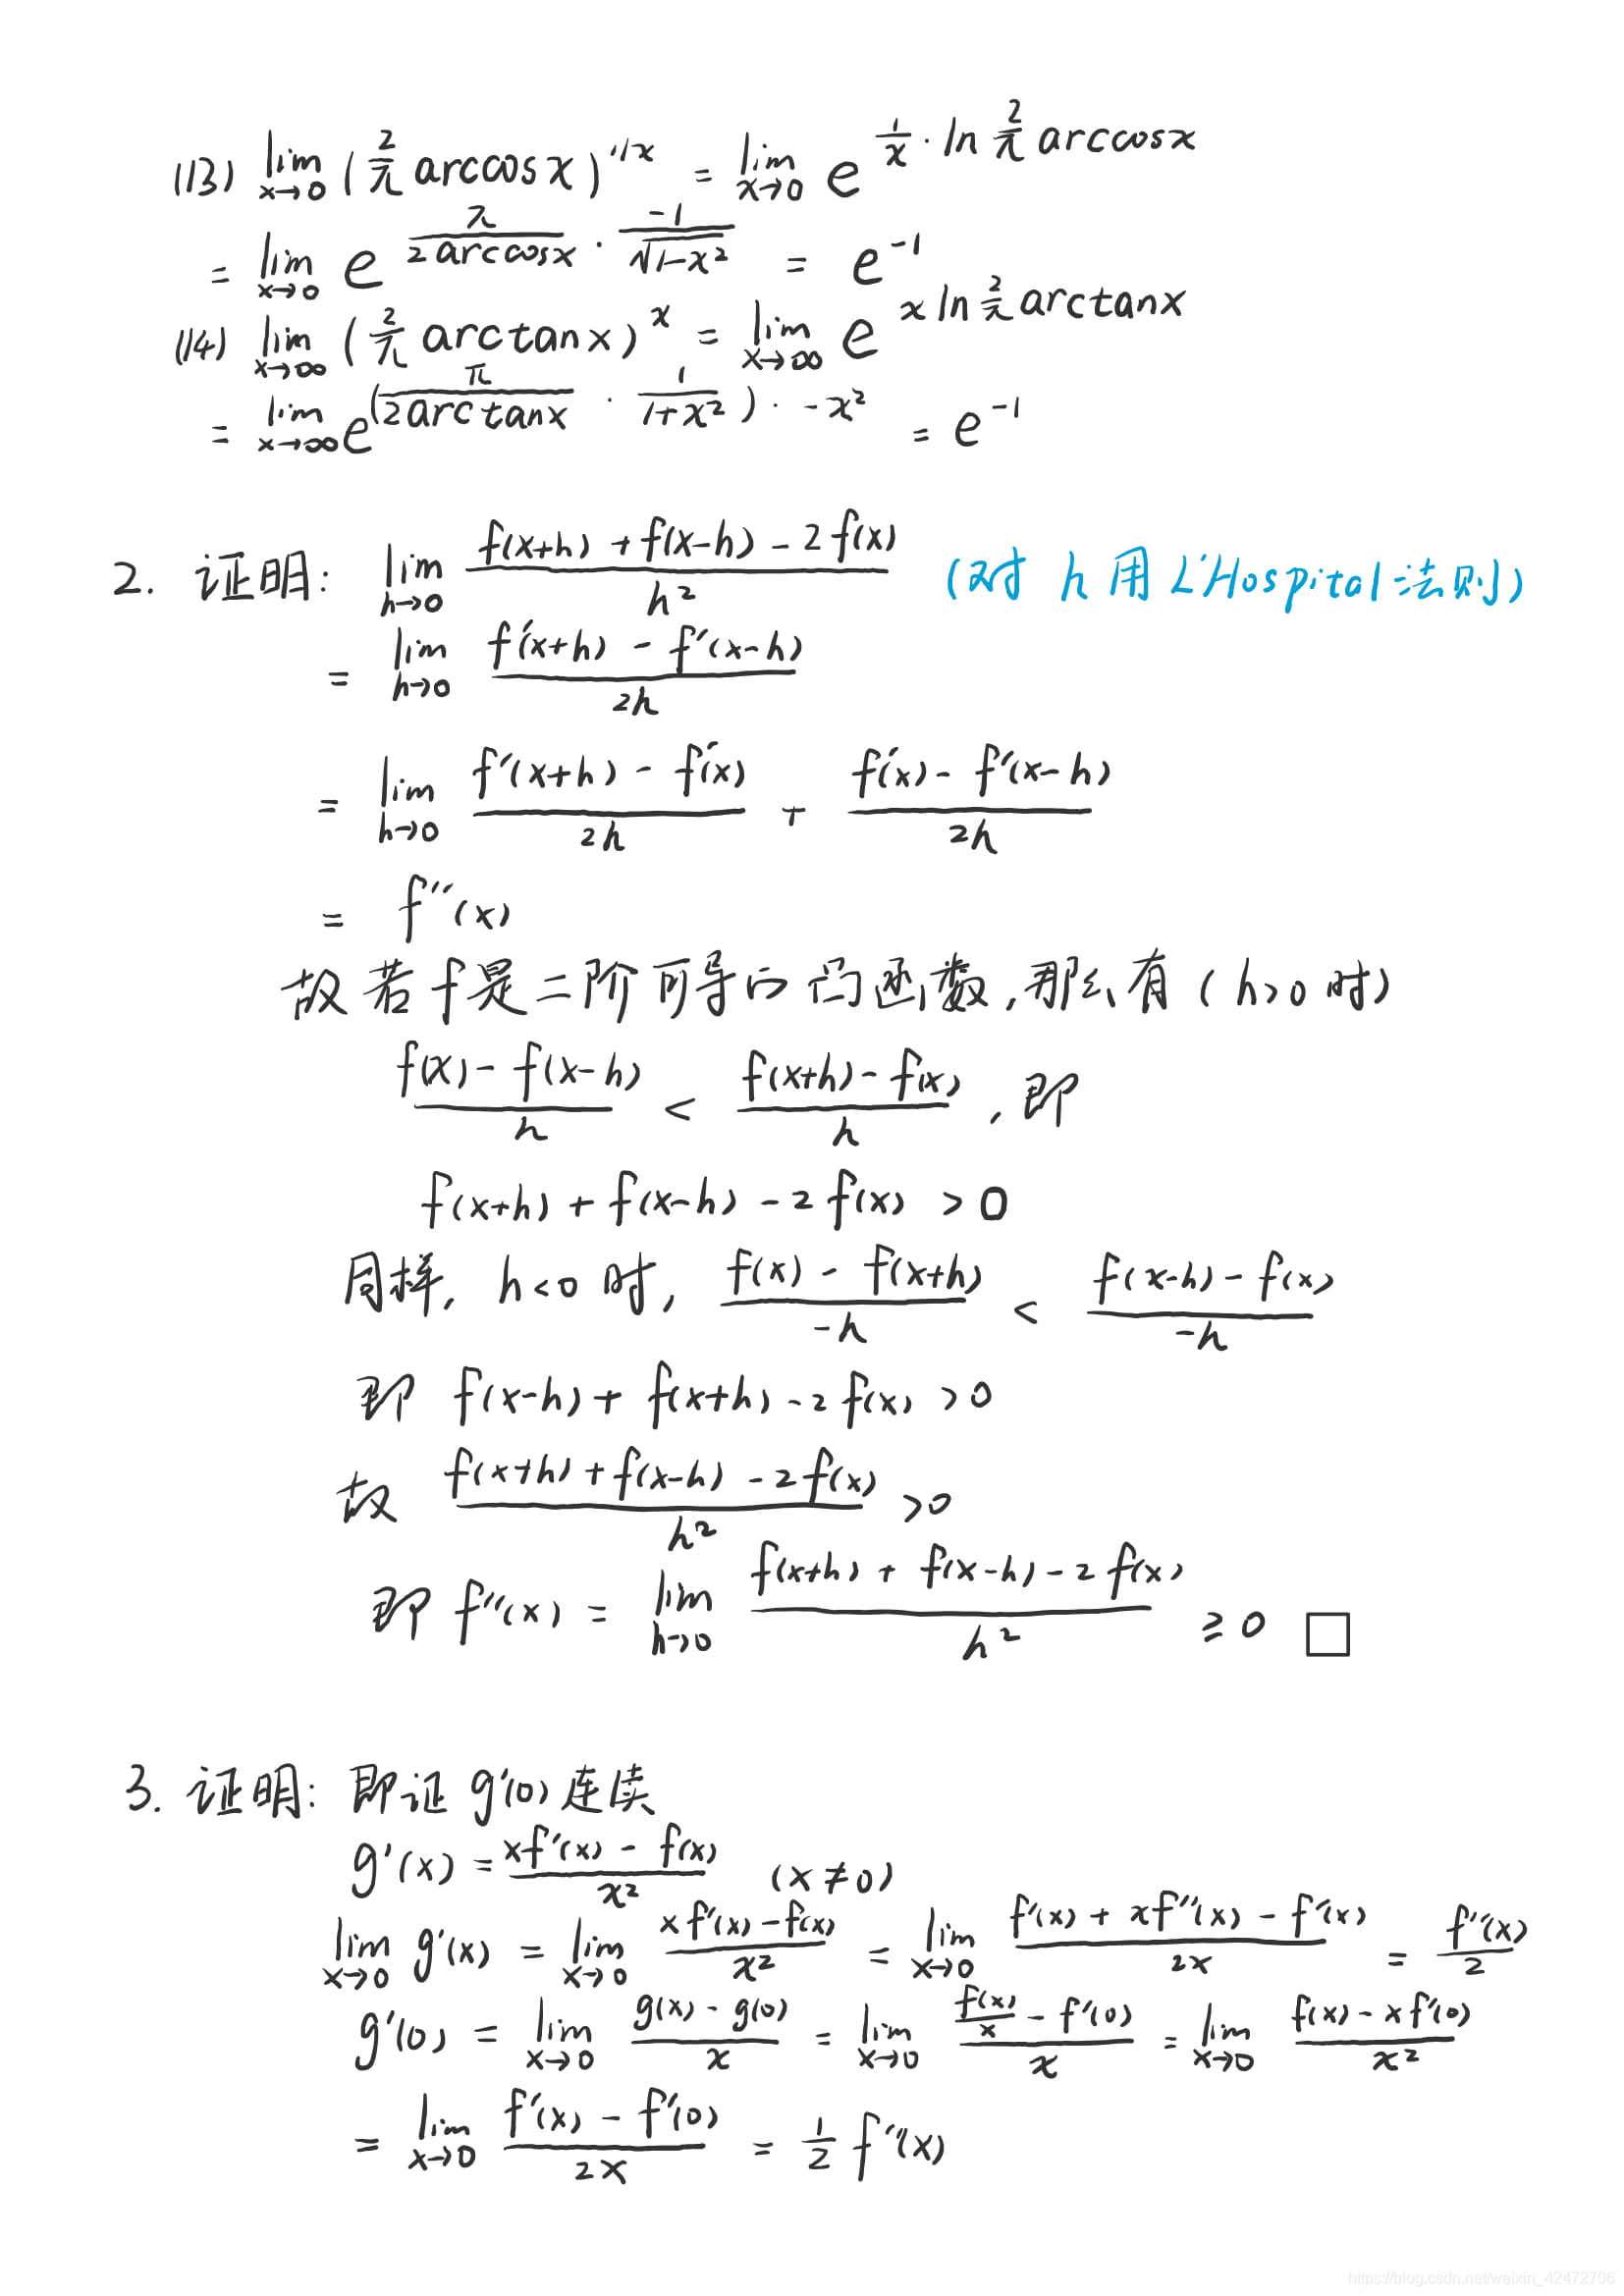 (13) lim_{x→0} (2/π arccos x)^{1/x} = lim_{x→0} e^{1/x · ln 2/π arccos x}
= lim_{x→0} e^{π/(2 arccos x) · -1/√(1-x²)} = e^{-1}
(14) lim_{x→∞} (2/π arctan x)^x = lim_{x→∞} e^{x ln 2/π arctan x}
= lim_{x→∞} e^{(π/(2 arctan x) · 1/(1+x²)) · -x²} = e^{-1}
2. 证明: lim_{h→0} (f(x+h) + f(x-h) - 2f(x))/h² (对 h 用 L'Hospital法则)
= lim_{h→0} (f'(x+h) - f'(x-h))/2h
= lim_{h→0} (f'(x+h) - f'(x))/2h + (f'(x) - f'(x-h))/2h
= f''(x)
故若f是二阶可导的凸函数,那么有 (h>0时)
(f(x) - f(x-h))/h < (f(x+h) - f(x))/h , 即
f(x+h) + f(x-h) - 2f(x) > 0
同样, h<0 时, (f(x) - f(x+h))/-h < (f(x-h) - f(x))/-h
即 f(x-h) + f(x+h) - 2f(x) > 0
故 (f(x+h) + f(x-h) - 2f(x))/h² > 0
即 f''(x) = lim_{h→0} (f(x+h) + f(x-h) - 2f(x))/h² ≥ 0 □
3. 证明: 即证 g'(0) 连续
g'(x) = (xf'(x) - f(x))/x² (x≠0)
lim_{x→0} g'(x) = lim_{x→0} (xf'(x) - f(x))/x² = lim_{x→0} (f'(x) + xf''(x) - f'(x))/2x = f''(x)/2
g'(0) = lim_{x→0} (g(x) - g(0))/x = lim_{x→0} (f(x)/x - f'(0))/x = lim_{x→0} (f(x) - xf'(0))/x²
= lim_{x→0} (f'(x) - f'(0))/2x = 1/2 f''(x)
https://blog.csdn.net/weixin_42472706